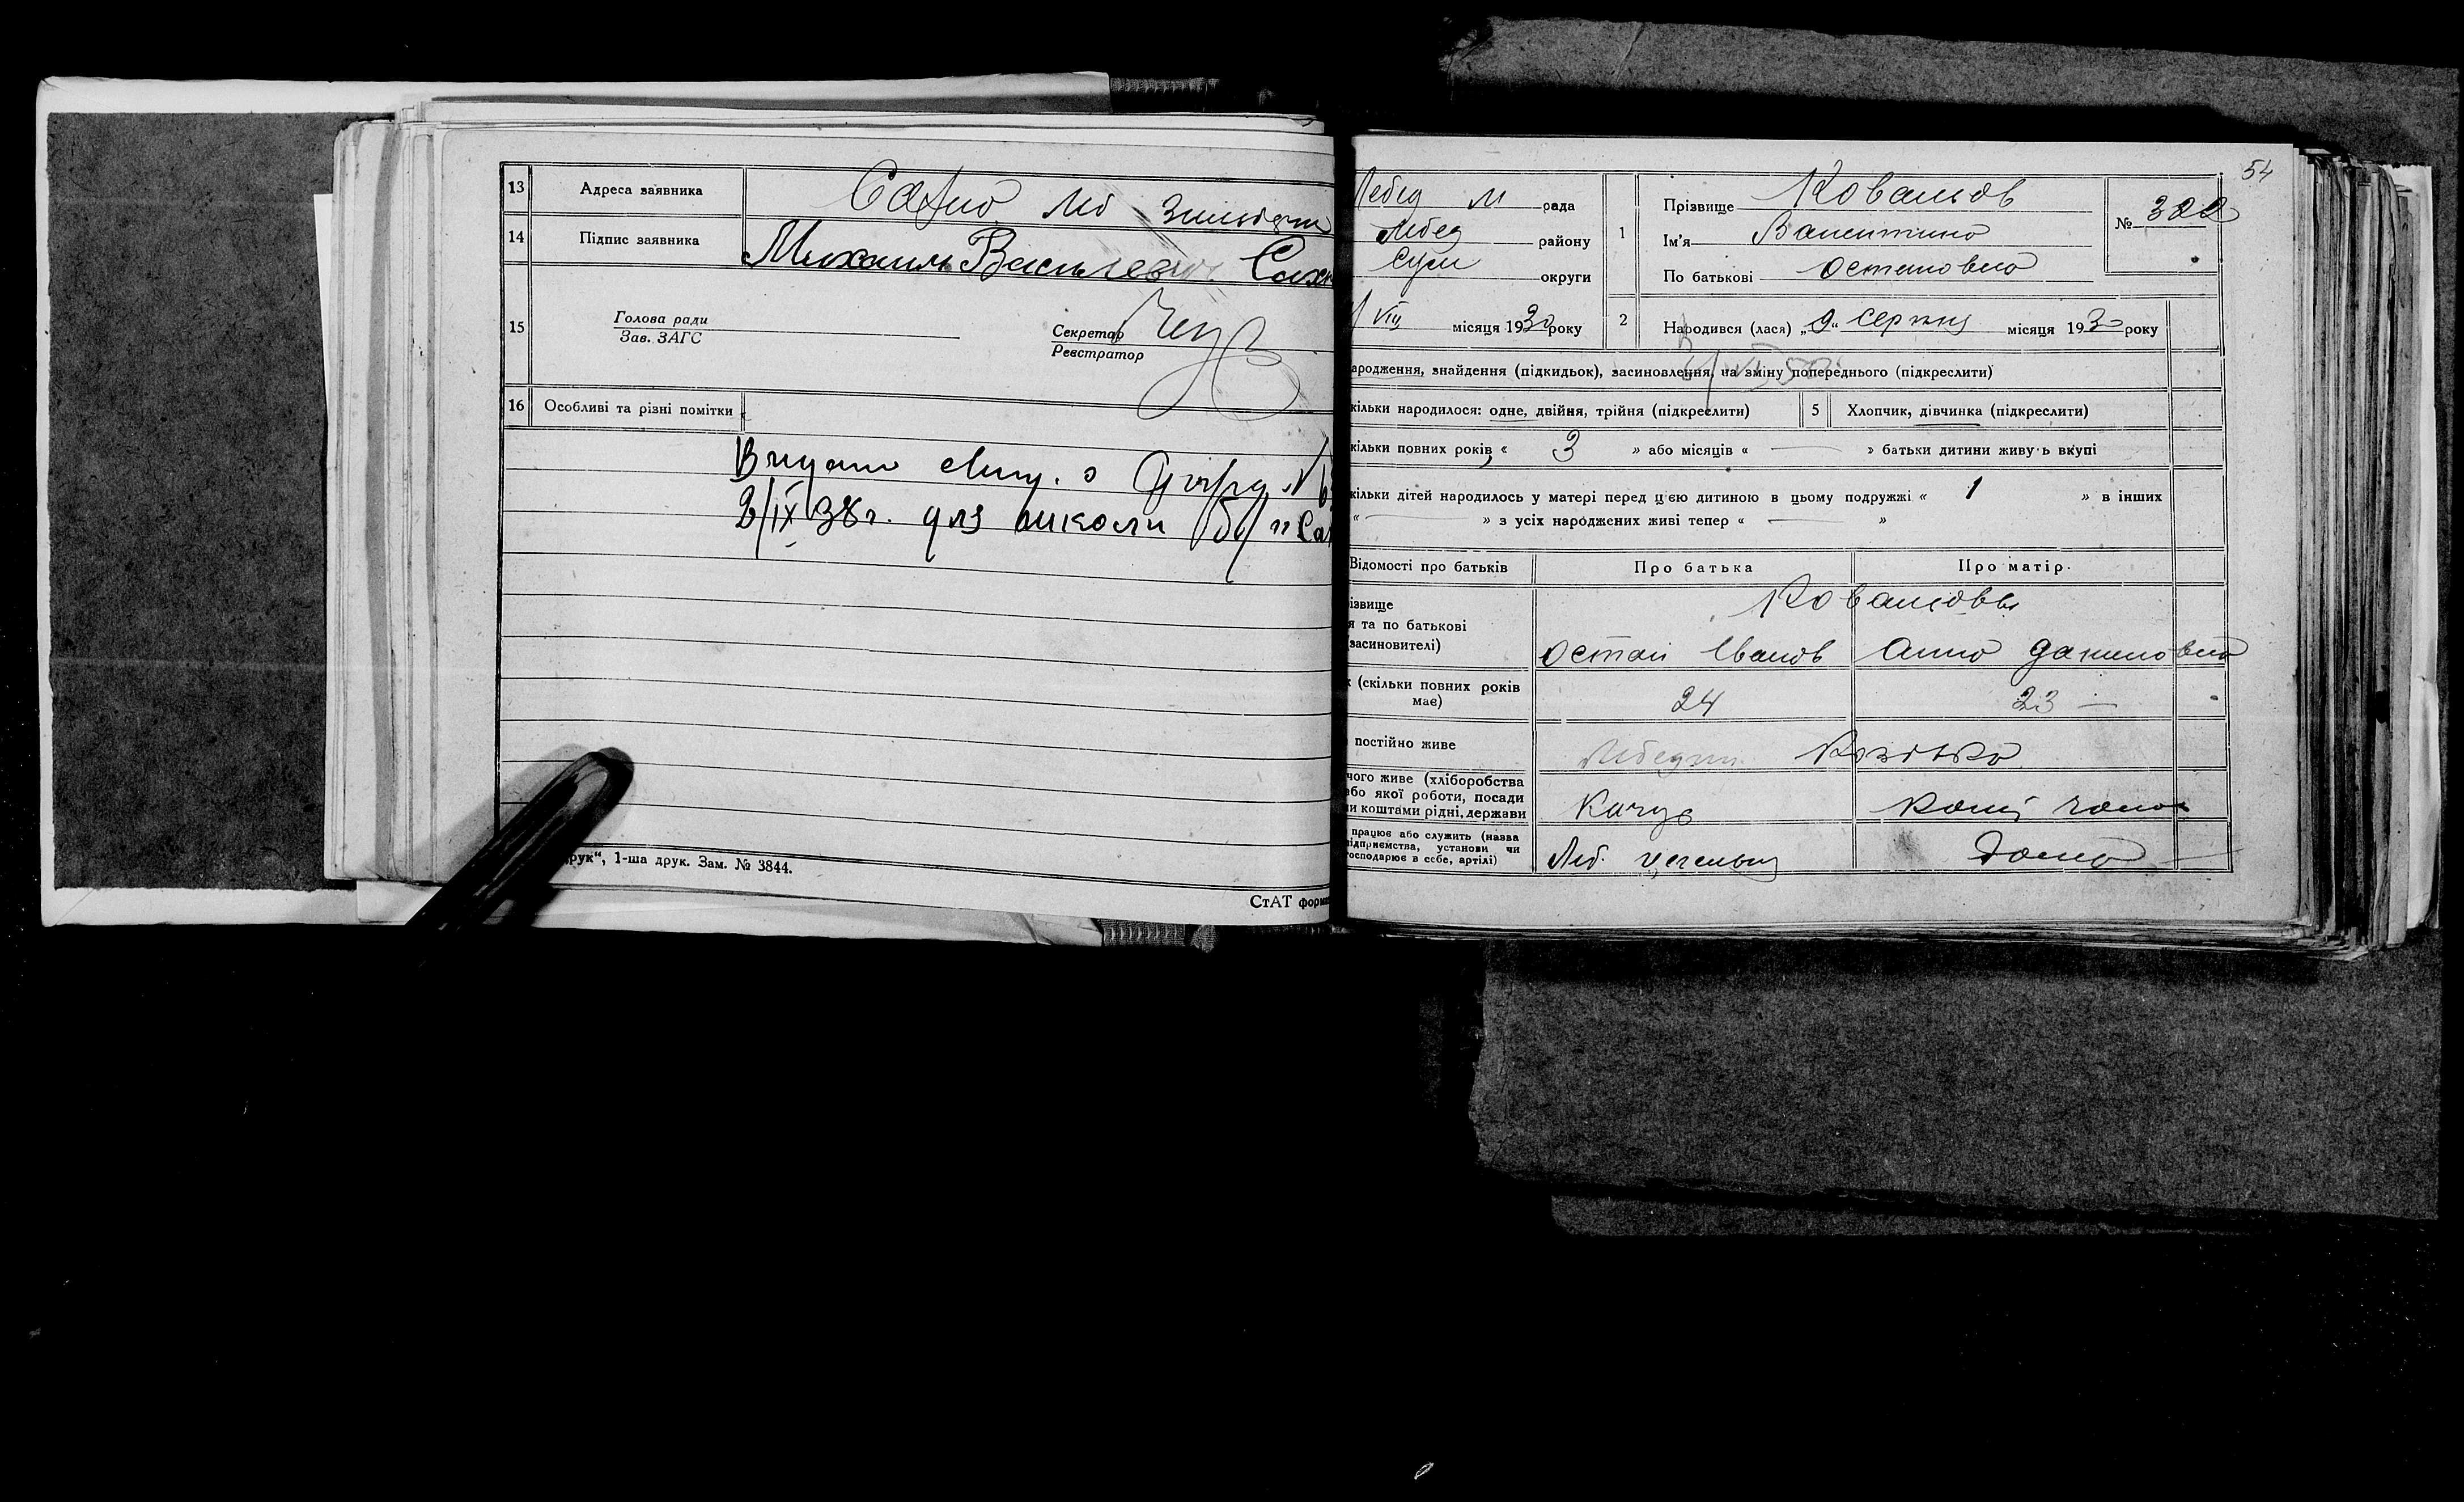 13 Адреса заявника Сахно Леб
14 Підпис заявника Михаиль Васильевич Сахн
15 Голова ради
Зав. ЗАГС
Секретар
Реєстратор
16 Особливі та різні помітки
Видано
2/IX 38г. для школи
друк“, 1-ша друк. Зам. № 3844.
СтАТ форма
54
Лебед м рада
Лебед району
Суми округи
VIII місяця 1930 року
1 Прізвище Ковальов
Ім'я Валентина
По батькові Остаповна
№ 322
2 Народився (лася) „9“ серпня місяця 1930 року
ародження, знайдення (підкидьок), засиновлення, на зміну попереднього (підкреслити)
кільки народилося: одне, двійня, трійня (підкреслити) 5 Хлопчик, дівчинка (підкреслити)
кільки повних років « 3 » або місяців « — » батьки дитини живуть вкупі
кільки дітей народилось у матері перед цією дитиною в цьому подружжі « 1 » в інших
« — » з усіх народжених живі тепер « — »
Відомості про батьків Про батька Про матір
ізвище Ковальовы
я та по батькові
(засиновителі) Остап Иванов Анна Даниловна
к (скільки повних років має) 24 23 —
постійно живе Лебедин
чого живе (хліборобства
або якої роботи, посади
чи коштами рідні, держави
працює або служить (назва
підприємства, установи чи
господарює в себе, артілі) Леб. цегельня Дома